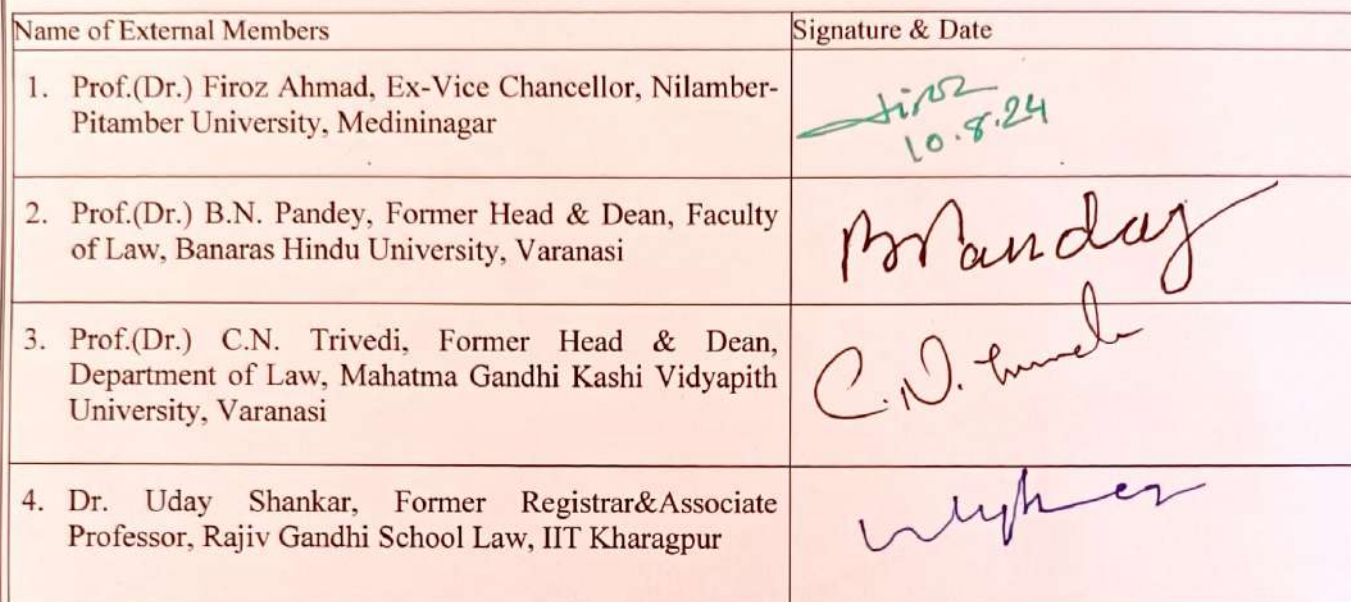 Name of External Members
Signature & Date
1. Prof.(Dr.) Firoz Ahmad, Ex-Vice Chancellor, Nilamber-
Pitamber University, Medininagar
Firoz
10.8.24
2. Prof.(Dr.) B.N. Pandey, Former Head & Dean, Faculty
of Law, Banaras Hindu University, Varanasi
BNPanday
3. Prof.(Dr.) C.N. Trivedi, Former Head & Dean,
Department of Law, Mahatma Gandhi Kashi Vidyapith
University, Varanasi
C.N.
4. Dr. Uday Shankar, Former Registrar&Associate
Professor, Rajiv Gandhi School Law, IIT Kharagpur